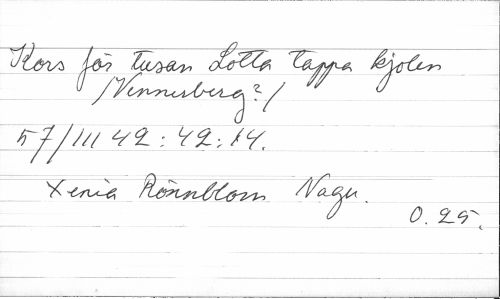 Kors för tusan Lotta tappa kjolen
/Vennerberg?/
57/III 42:42:14.
Xenia Rönnblom Nagu.
0.25.